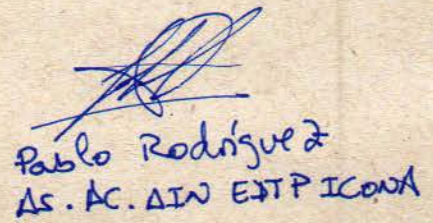 Pablo Rodríguez
AS. AC. AIN EXTP ICONA